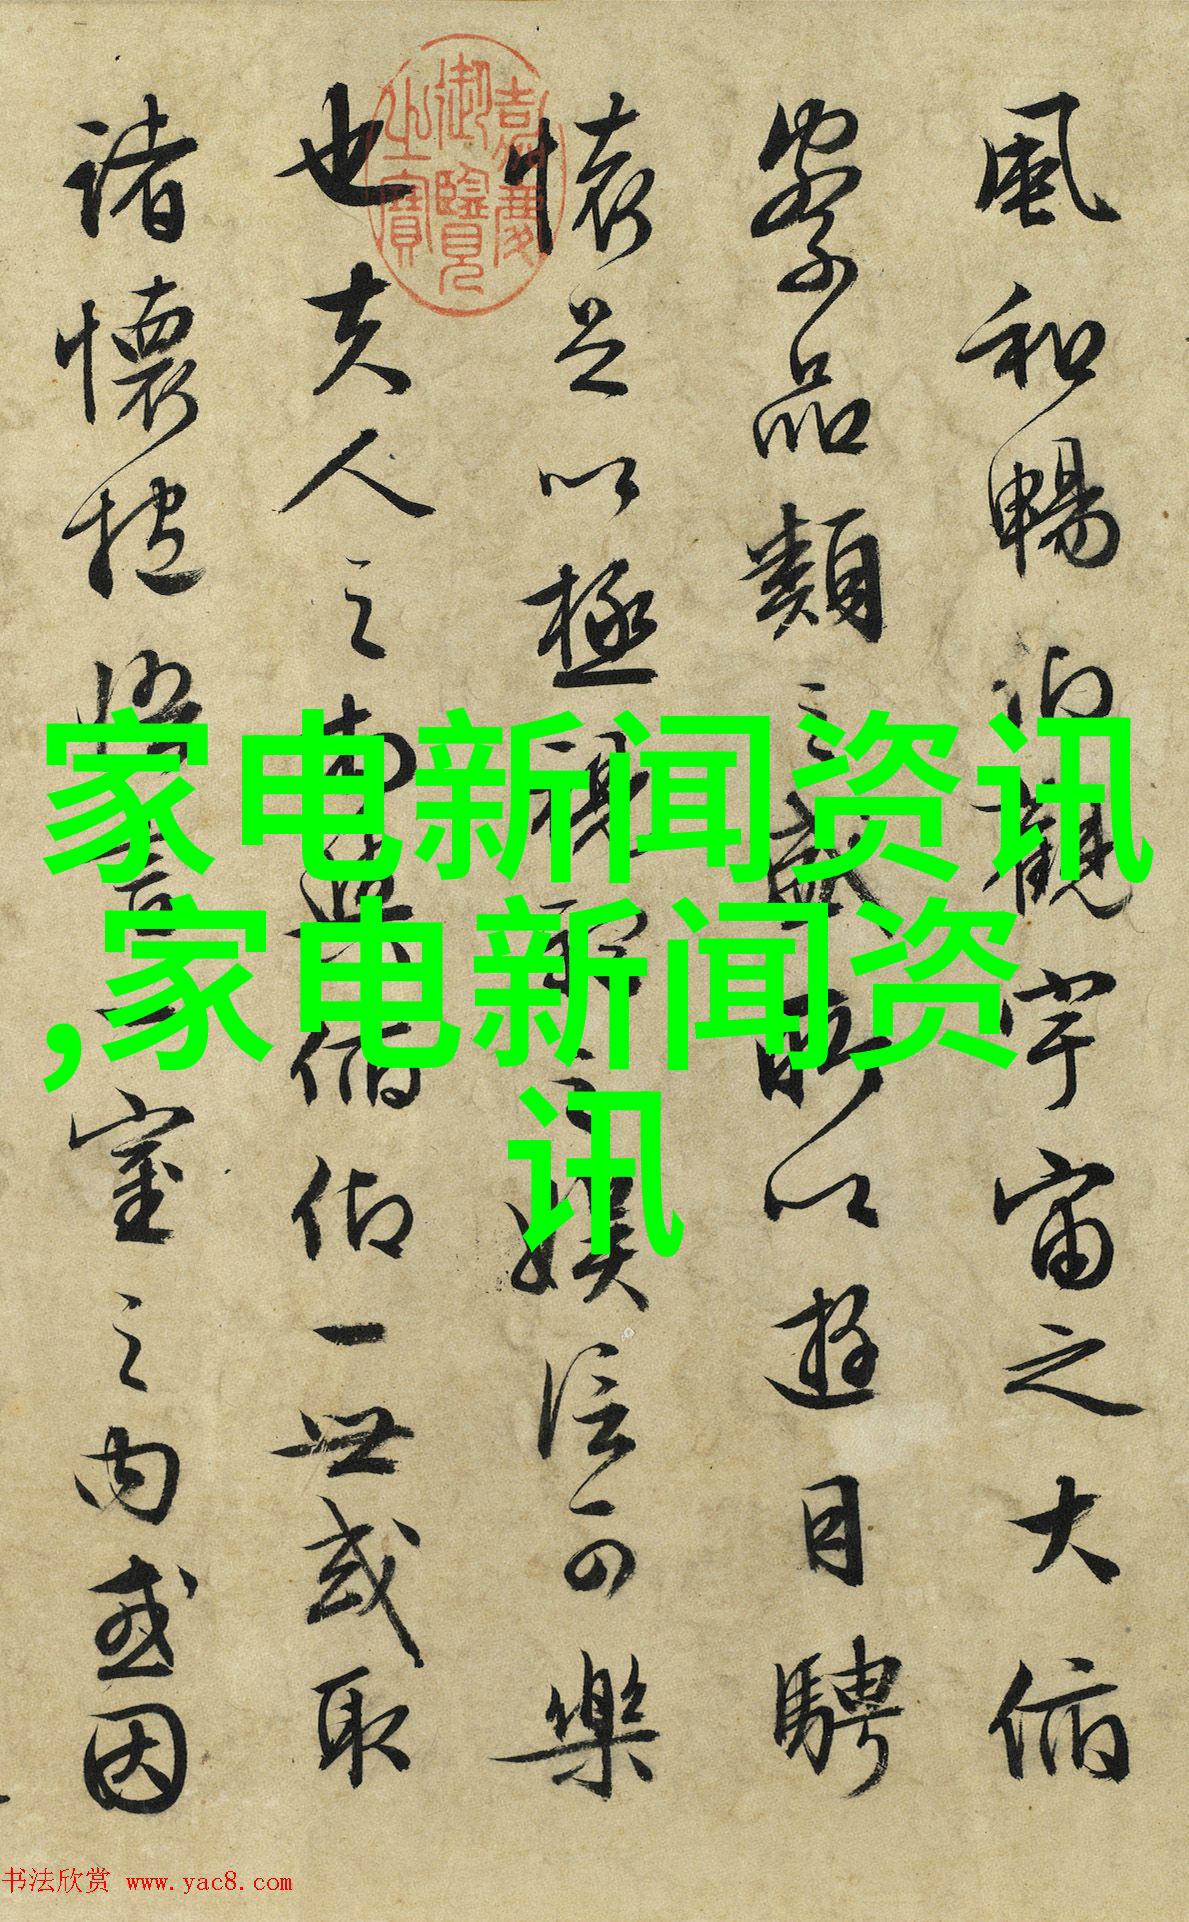 風和暢仰觀宇宙之大俯
察品類之盛所以遊目騁
懷足以極視聽之娛信可樂
也夫人之相與俯仰一世或取
諸懷抱悟言一室之內或因
嘉慶御覽之寶
家电新闻资讯
,家电新闻资
讯
书法欣赏 www.yac8.com